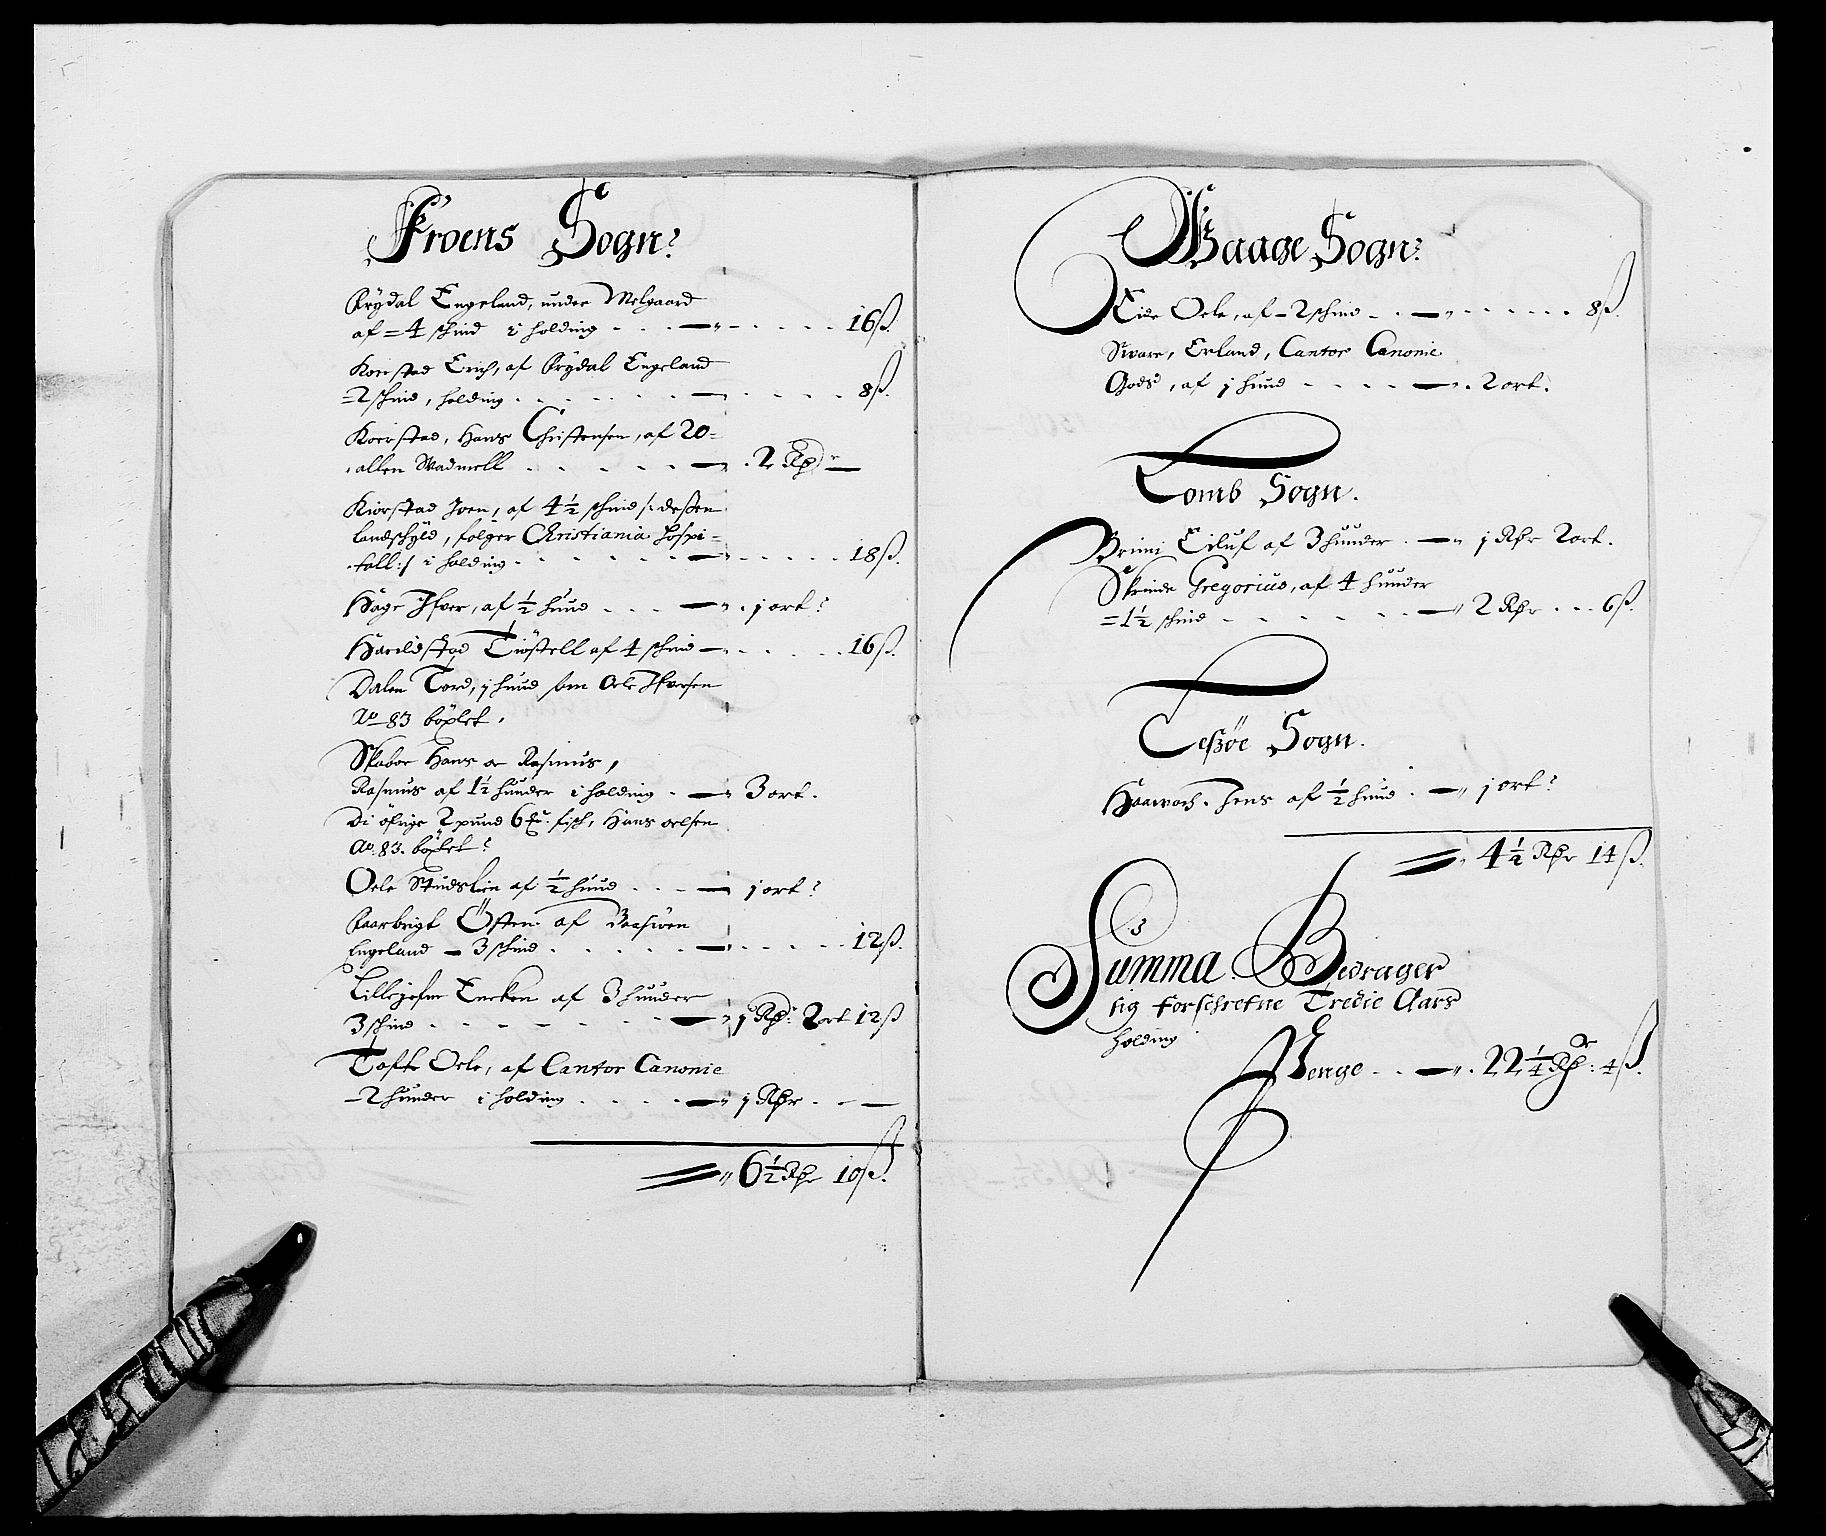 Froens Sogn:
Rydal Engeland, under Melgaard
af = 4 schind i holding - - - 16 ß.
Koerstad Erich, af Rydal Engeland
= 2 schind, holding - - - 8 ß.
Koerstad, Hans Christensen, af 20 =
allen Wadmell - - - 2 Rdr
Kiorstad Joen, af 4½ schind /: deßen
landschyld, følger Christiania Hospi =
tall :/ i holding - - - 18 ß.
Hage Ifver, af ½ huud - - - 1 ort:
Haroldstad Tiostell af 4 schind - - - 16 ß.
Dalen Tord, 1 huud som Oele Ifversen
Ao 83 böxlet,
Skaboe Hans oc Rasmus,
Rasmus af 1½ huuder i holding - - 3 ort.
Di öfrige 2 pund 6 fisk, Hans oelsen
Ao. 83. böxlet:
Oele Studslien af ½ huud - - - 1 ort:
Östen af
Engeland - 3 schind - - - 12 ß.
Encken af 3 huuder
3 schind - - - 1 Rdr: 2 ort 12 ß
Tofte Oele, af Cantor Canonie
- 2 huuder i holding - - - 1 Rdr - -
6½ Rdr 10 ß.
Waage Sogn:
Eide Oele, af - 2 schind - - - 8 ß.
Sware, Erland, Cantor Canonie
Gods, af 1 huud - - - 2 ort.
Lomb Sogn.
Brimi Eiluf af 3 huuder - 1 Rdr 2 ort.
Skrinde Gregorius, af 4 huuder
= 1½ schind - - - 2 Rdr - - - 6 ß.
Leßöe Sogn.
Jens af ½ huud - 1 ort:
4½ Rdr 14 ß.
Summa Bedrager
sig forschrefne Tredie Aars
holding
Penge - - - 22¼ Rdr: 4 ß.